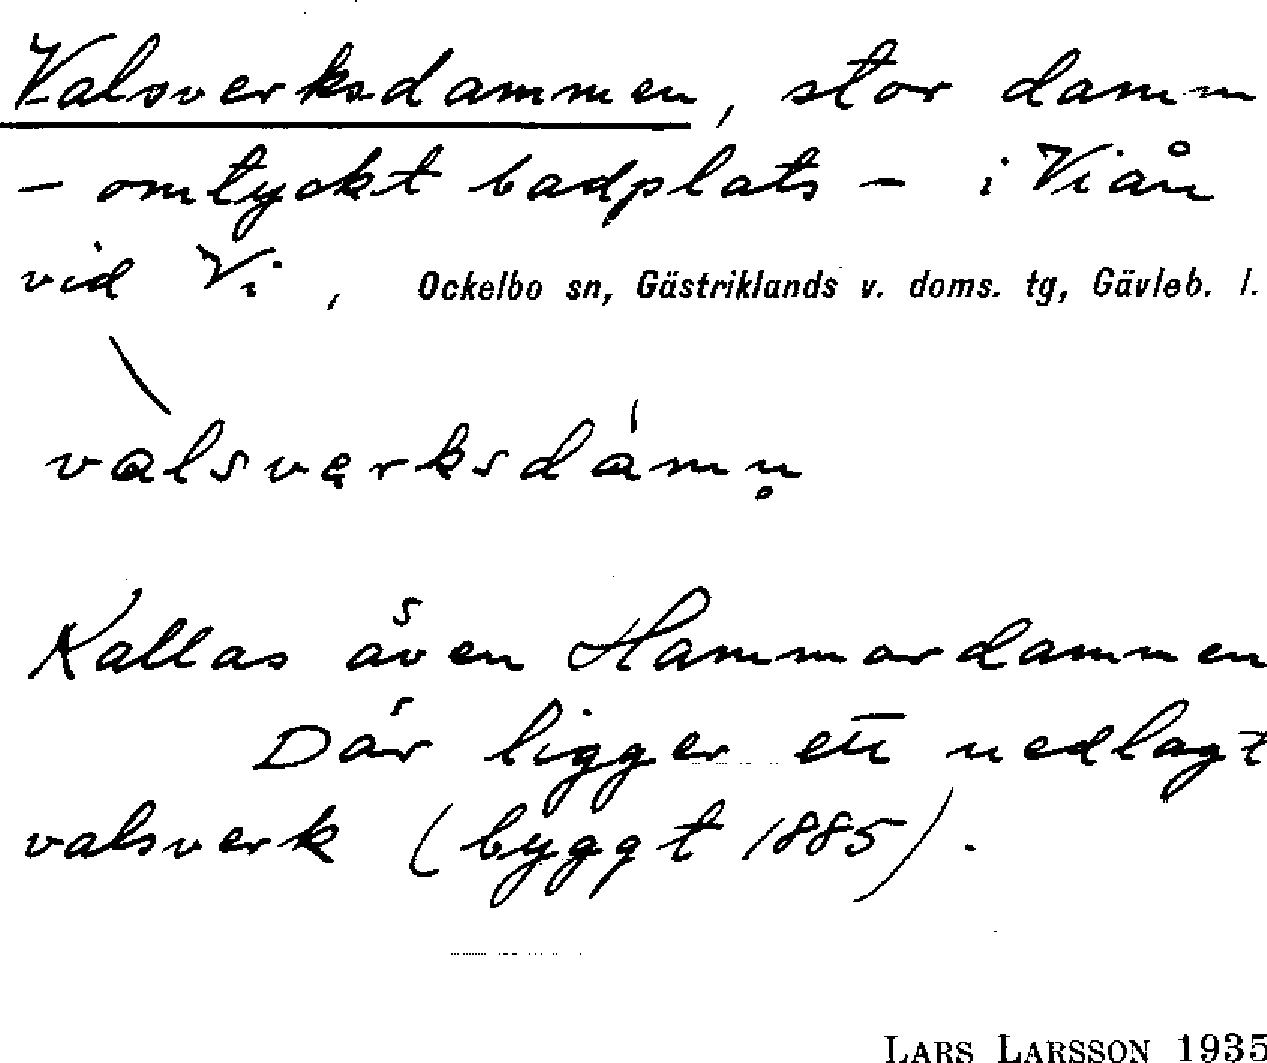 Valsverksdammen, stor damm
- omtyckt badplats - i Viån
vid Vi, Ockelbo sn, Gästriklands v. doms. tg, Gävleb. l.
valsvęrksdámn̥
Kallas även Hammardammen
Där ligger ett nedlagt
valsverk (byggt 1885).
LARS LARSSON 1935